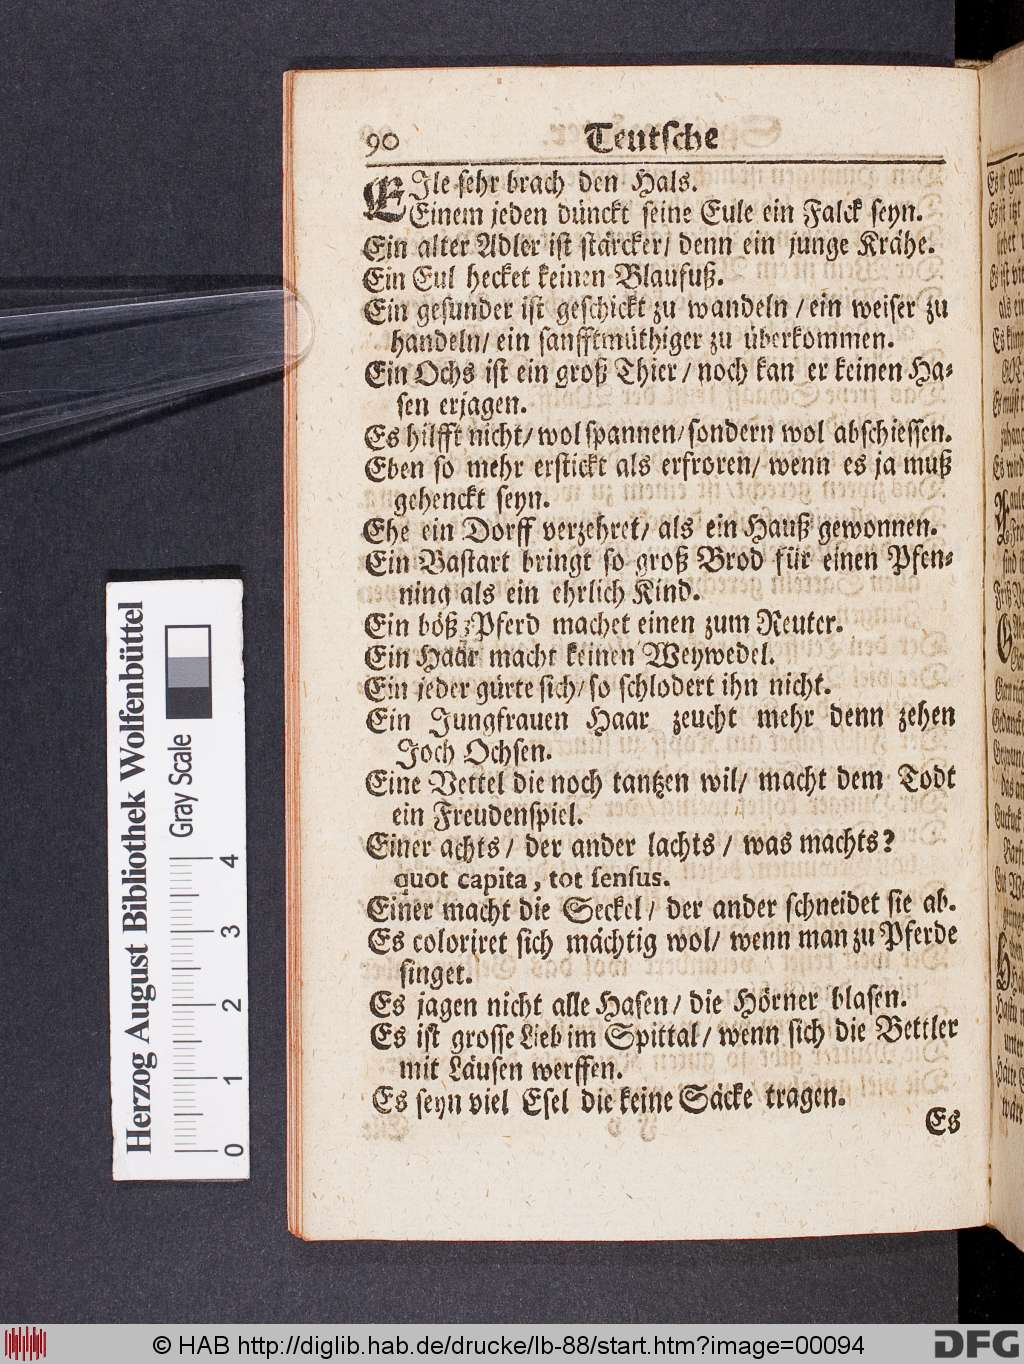 90 Teutsche
EJle sehr brach den Hals.
Einem jeden dünckt seine Eule ein Falck seyn.
Ein alter Adler ist stärcker/ denn ein junge Krähe.
Ein Eul hecket keinen Blaufuß.
Ein gesunder ist geschickt zu wandeln / ein weiser zu
handeln/ ein sanfftmüthiger zu überkommen.
Ein Ochs ist ein groß Thier / noch kan er keinen Ha-
sen erjagen.
Es hilfft nicht/ wol spannen/ sondern wol abschiessen.
Eben so mehr erstickt als erfroren/ wenn es ja muß
gehenckt seyn.
Ehe ein Dorff verzehret/ als ein Hauß gewonnen.
Ein Bastart bringt so groß Brod für einen Pfen-
ning als ein ehrlich Kind.
Ein böß Pferd machet einen zum Reuter.
Ein Haar macht keinen Weywedel.
Ein jeder gürte sich/ so schlodert ihn nicht.
Ein Jungfrauen Haar zeucht mehr denn zehen
Joch Ochsen.
Eine Vettel die noch tantzen wil/ macht dem Todt
ein Freudenspiel.
Einer achts / der ander lachts / was machts?
quot capita, tot sensus.
Einer macht die Seckel / der ander schneidet sie ab.
Es coloriret sich mächtig wol/ wenn man zu Pferde
singet.
Es jagen nicht alle Hasen / die Hörner blasen.
Es ist grosse Lieb im Spittal / wenn sich die Bettler
mit Läusen werffen.
Es seyn viel Esel die keine Säcke tragen.
Es
Herzog August Bibliothek Wolfenbüttel
Gray Scale
0 1 2 3 4
© HAB http://diglib.hab.de/drucke/lb-88/start.htm?image=00094
DFG